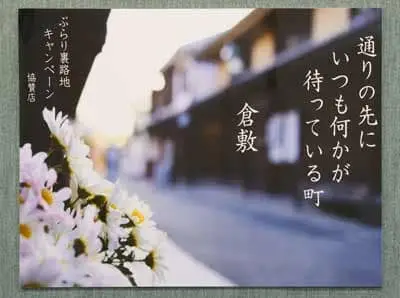 通りの先に
いつも何かが
待っている町
倉敷
ぶらり裏路地
キャンペーン
協賛店